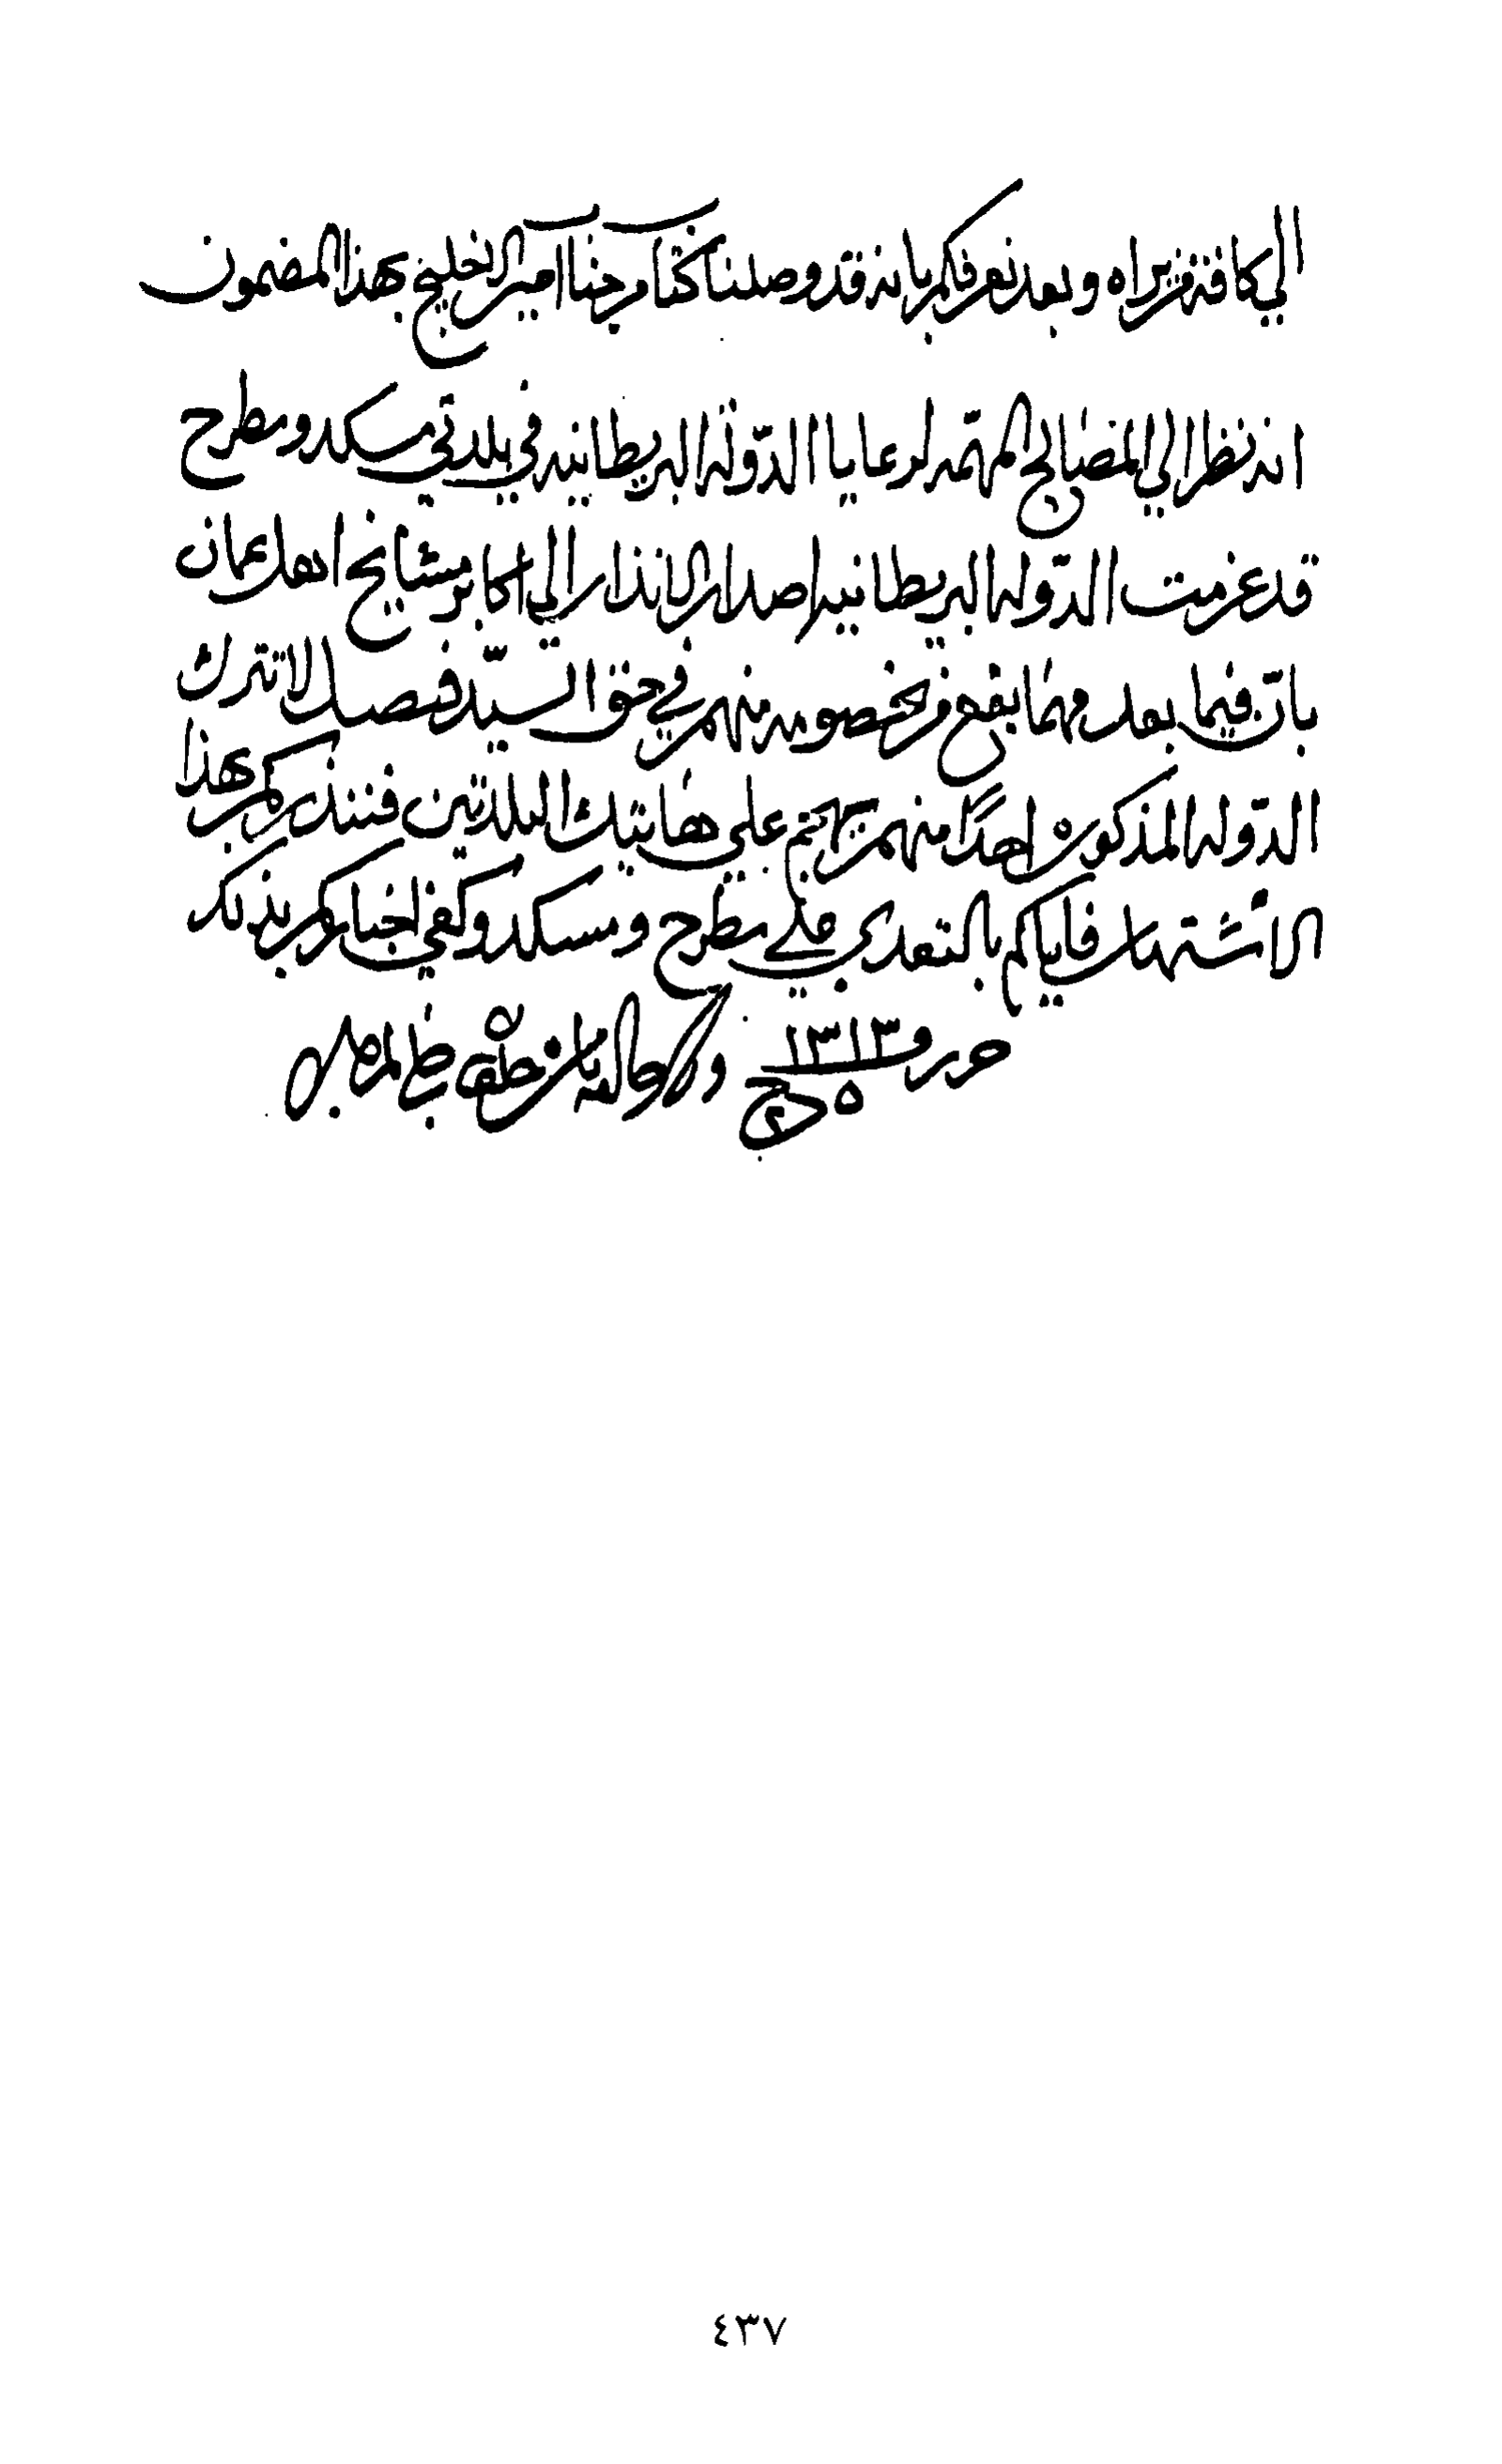 الي كافة من يراه وبعد نعرفكم بانه قد وصلنا كتاب من جناب امير الخليج بهذا المضمون
انه نظرا الي المصالح المهمه لرعايا الدّولة البريطانيه في بلدتي مسكد ومطرح
قد عزمت الدّوله البريطانيه اصدار الانذار الي اكابر مشايخ اهل عمان
بانّ فيما بعد مهما يقع من خصومه منهم في حق السيّد فيصل لا تترك
الدّوله المذكوره احدًا منهم يتهاجم علي هاتيك البلدتين فننذركم بهذا
الاشتهار فاياكم بالتعدي علي مطرح ومسكد وكفي اخباركم بذلك
حرر ١٣١٣ ٥
٤٣٧